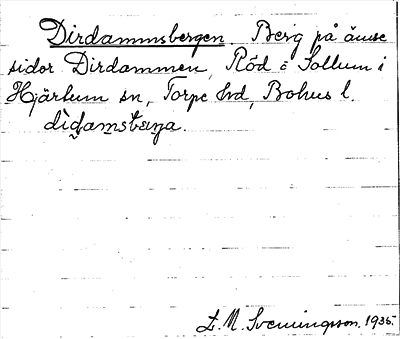 Dirdammsbergen. Berg på ömse
sidor Dirdammen, Röd i Sollum i
Hjärtum sn, Torpe hd, Bohus l.
E. M. Svenningsson. 1935.